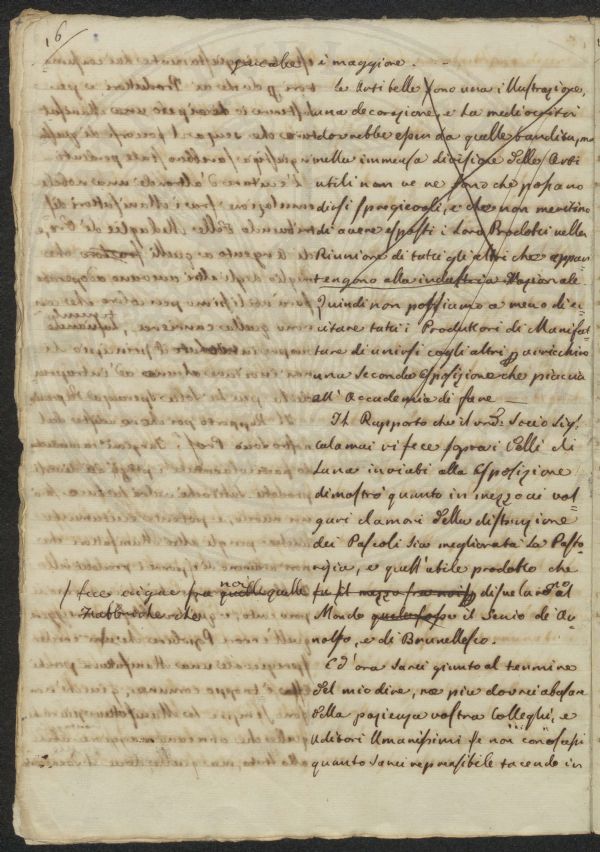 16
giacche è maggiore.
Le Arti belle sono una illustrazione,
una decorazione, e la mediocrità
dovrebbe esser da quelle bandita, ma
nella immensa divisione delle Arti
utili non ve ne sono che possano
dirsi spregievoli, e che non meritino
di avere esposti i loro Prodotti nella
Riunione di tutti gli altri che appar=
tengono alla industria Nazionale.
Quindi non possiamo a meno di ec=
citare tutti i Produttori di Manifat=
ture di unirsi cogli altri p arricchire
una seconda Esposizione che piaccia
all' Accademia di fare —
Il Rapporto che il nro Socio Sig.
Calamai vi fece sopra i Velli di
Lana inviati alla Esposizione
dimostrò quanto in mezzo ai vol=
gari clamori della distruzione
dei Pascoli sia megliorata la Pasto=
rizia, e quell' utile prodotto che
/ fece nascere fra noi quelle
fu il mezzo fra noi p
Fabbriche che
disvelarono al
Mondo il Genio di Ar=
nolfo, e di Brunellesco.
Ed ora sarei giunto al termine
del mio dire, nè più dovrei abusare
della pazienza vostra Colleghi, e
Uditori Umanissimi se non conoscessi
quanto sarei reprensibile tacendo in